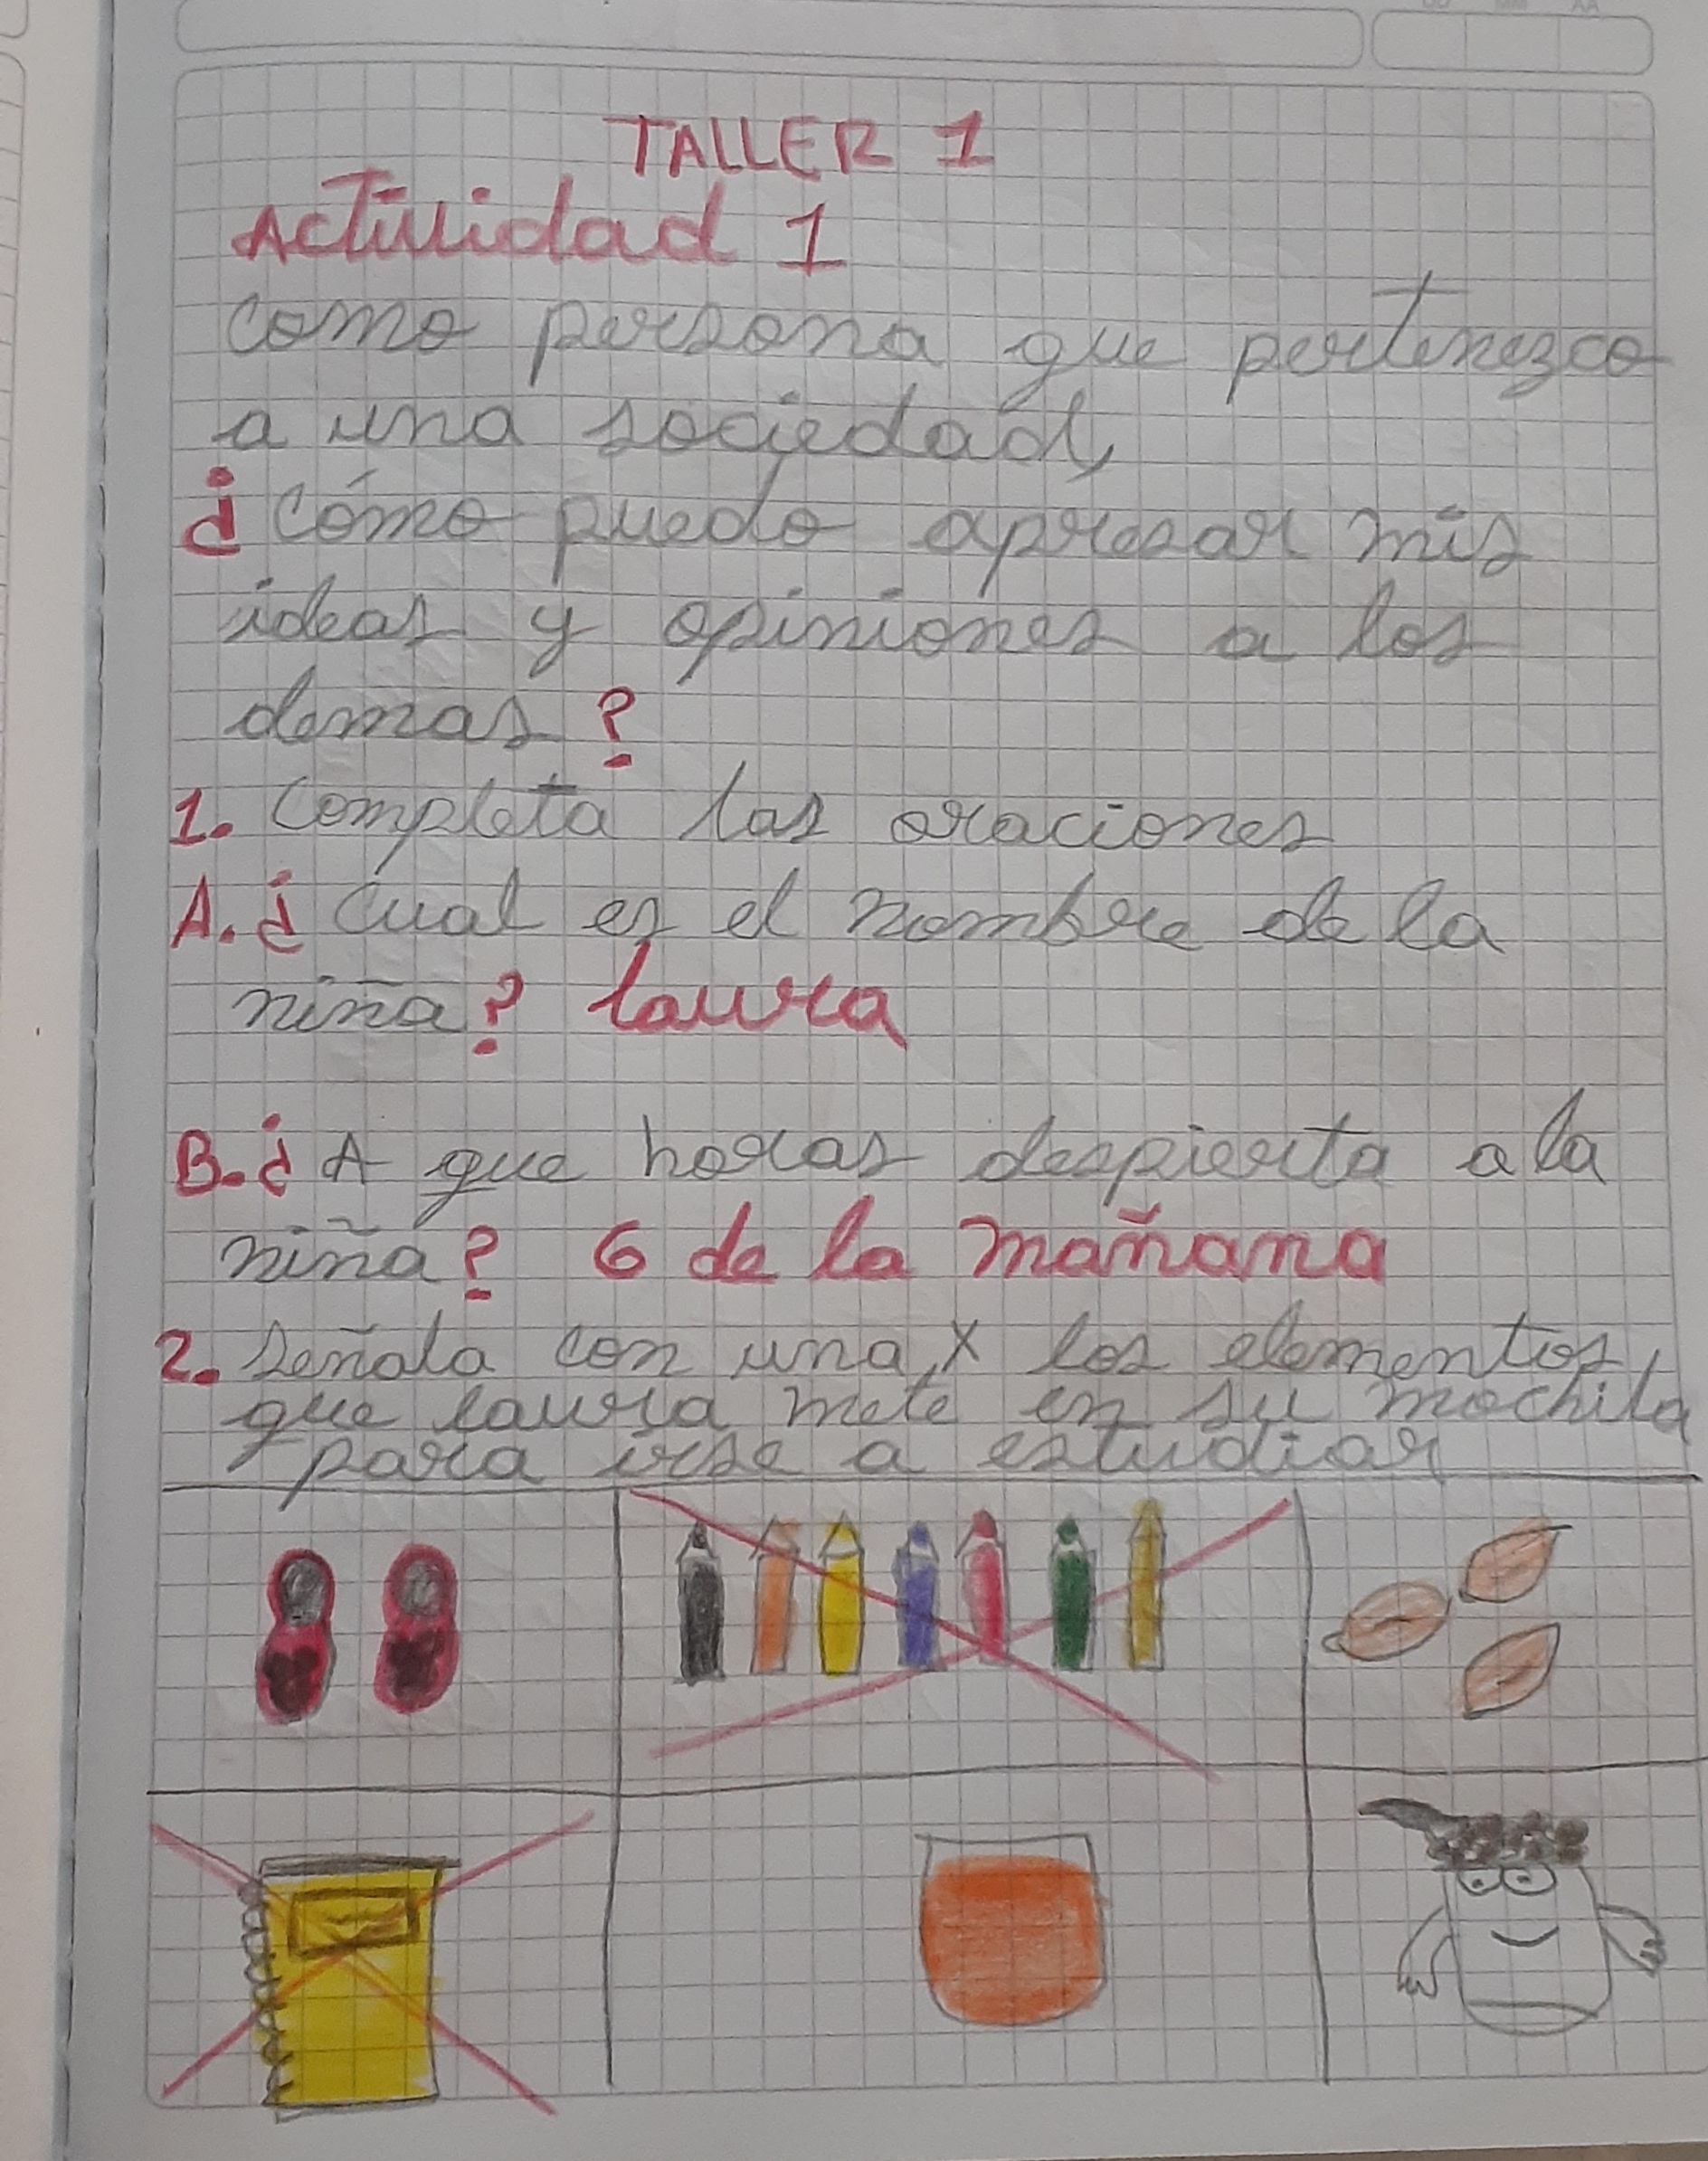 TALLER 1
Actividad 1
como persona que pertenezco
a una sociedad,
¿cómo puedo apresar mis
ideas y opiniones a los
demas?
1. Completa las oraciones
A. ¿cual es el nombre de la
niña? laura
B. ¿A que horas despierta a la
niña? 6 de la mañana
2. señala con una X los elementos,
que laura mete en su mochila
para irse a estudiar